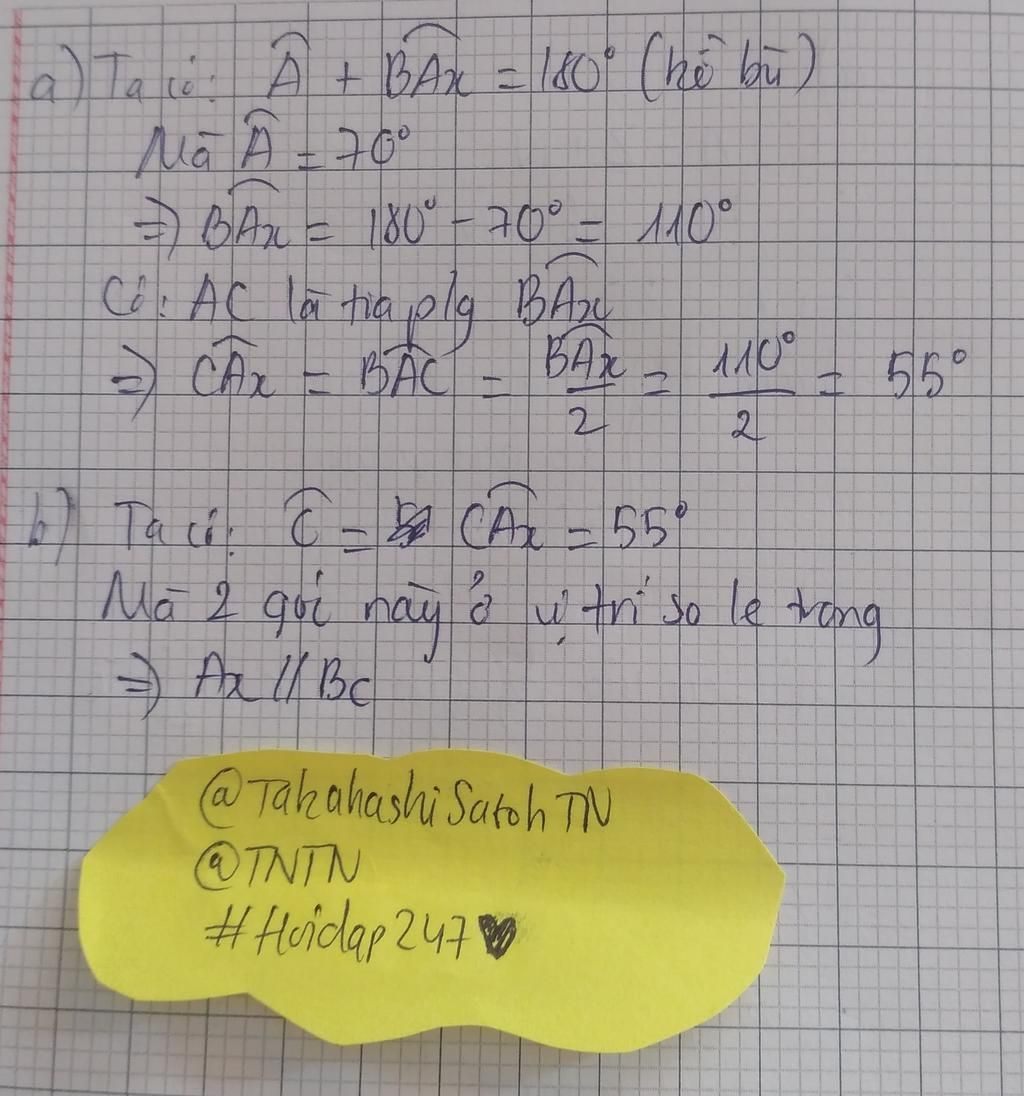 a) Ta có: Â + BÂx = 180° (kề bù)
Mà Â = 70°
=> BÂx = 180° - 70° = 110°
Có: AC là tia p/g BÂx
=> CÂx = BÂC = BÂx/2 = 110°/2 = 55°
b) Ta có: Ĉ = CÂx = 55°
Mà 2 góc này ở vị trí so le trong
=> Ax // BC
@TakahashiSatohTN
@TNTN
#Hoidap247♥